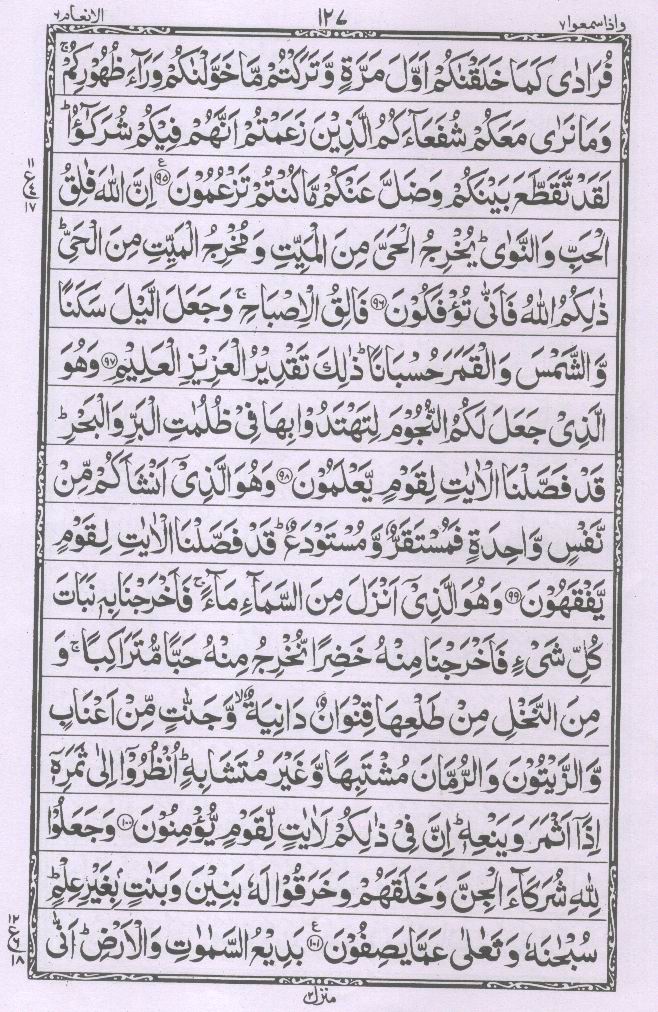 واذا سمعوا ٧ ١٢٧ الانعام ٦
فُرَادٰى كَمَا خَلَقْنٰكُمْ اَوَّلَ مَرَّةٍ وَّتَرَكْتُمْ مَّا خَوَّلْنٰكُمْ وَرَآءَ ظُهُوْرِكُمْ ۚ
وَمَا نَرٰى مَعَكُمْ شُفَعَآءَكُمُ الَّذِيْنَ زَعَمْتُمْ اَنَّهُمْ فِيْكُمْ شُرَكٰٓؤُا ؕ
لَقَدْ تَّقَطَّعَ بَيْنَكُمْ وَضَلَّ عَنْكُمْ مَّا كُنْتُمْ تَزْعُمُوْنَ ﴿٩٥﴾ اِنَّ اللّٰهَ فٰلِقُ
١١ ع ٤ ١٧
الْحَبِّ وَالنَّوٰى ؕ يُخْرِجُ الْحَىَّ مِنَ الْمَيِّتِ وَمُخْرِجُ الْمَيِّتِ مِنَ الْحَىِّ ؕ
ذٰلِكُمُ اللّٰهُ فَاَنّٰى تُؤْفَكُوْنَ ﴿٩٦﴾ فَالِقُ الْاِصْبَاحِ ۚ وَجَعَلَ الَّيْلَ سَكَنًا
وَّالشَّمْسَ وَالْقَمَرَ حُسْبَانًا ؕ ذٰلِكَ تَقْدِيْرُ الْعَزِيْزِ الْعَلِيْمِ ﴿٩٧﴾ وَهُوَ
الَّذِىْ جَعَلَ لَكُمُ النُّجُوْمَ لِتَهْتَدُوْا بِهَا فِىْ ظُلُمٰتِ الْبَرِّ وَالْبَحْرِ ؕ
قَدْ فَصَّلْنَا الْاٰيٰتِ لِقَوْمٍ يَّعْلَمُوْنَ ﴿٩٨﴾ وَهُوَ الَّذِىْٓ اَنْشَاَكُمْ مِّنْ
نَّفْسٍ وَّاحِدَةٍ فَمُسْتَقَرٌّ وَّمُسْتَوْدَعٌ ؕ قَدْ فَصَّلْنَا الْاٰيٰتِ لِقَوْمٍ
يَّفْقَهُوْنَ ﴿٩٩﴾ وَهُوَ الَّذِىْٓ اَنْزَلَ مِنَ السَّمَآءِ مَآءً ۚ فَاَخْرَجْنَا بِهٖ نَبَاتَ
كُلِّ شَىْءٍ فَاَخْرَجْنَا مِنْهُ خَضِرًا نُّخْرِجُ مِنْهُ حَبًّا مُّتَرَاكِبًا ۚ وَ
مِنَ النَّخْلِ مِنْ طَلْعِهَا قِنْوَانٌ دَانِيَةٌ ۙ وَّجَنّٰتٍ مِّنْ اَعْنَابٍ
وَّالزَّيْتُوْنَ وَالرُّمَّانَ مُشْتَبِهًا وَّغَيْرَ مُتَشَابِهٍ ؕ اُنْظُرُوْٓا اِلٰى ثَمَرِهٖٓ
اِذَآ اَثْمَرَ وَيَنْعِهٖ ؕ اِنَّ فِىْ ذٰلِكُمْ لَاٰيٰتٍ لِّقَوْمٍ يُّؤْمِنُوْنَ ﴿١٠٠﴾ وَجَعَلُوْا
لِلّٰهِ شُرَكَآءَ الْجِنَّ وَخَلَقَهُمْ وَخَرَقُوْا لَهٗ بَنِيْنَ وَبَنٰتٍ ۢ بِغَيْرِ عِلْمٍ ؕ
سُبْحٰنَهٗ وَتَعٰلٰى عَمَّا يَصِفُوْنَ ﴿١٠١﴾ بَدِيْعُ السَّمٰوٰتِ وَالْاَرْضِ ؕ اَنّٰى
١٢ ع ٦ ١٨
منزل ٢